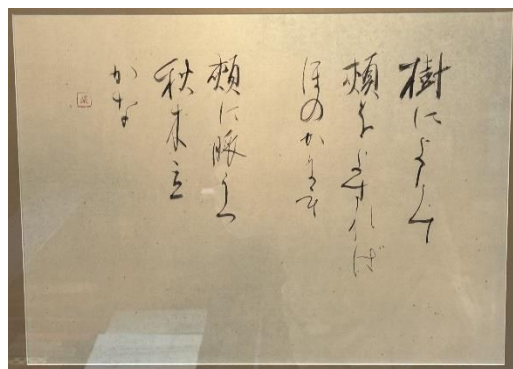 樹によりて
頬をよすれば
ほのかにも
頬に脈うつ
秋木立
かな